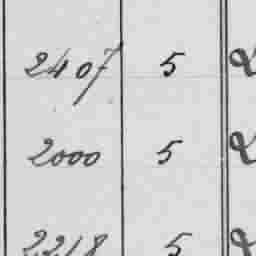 2407 5
2000 5
2218 5